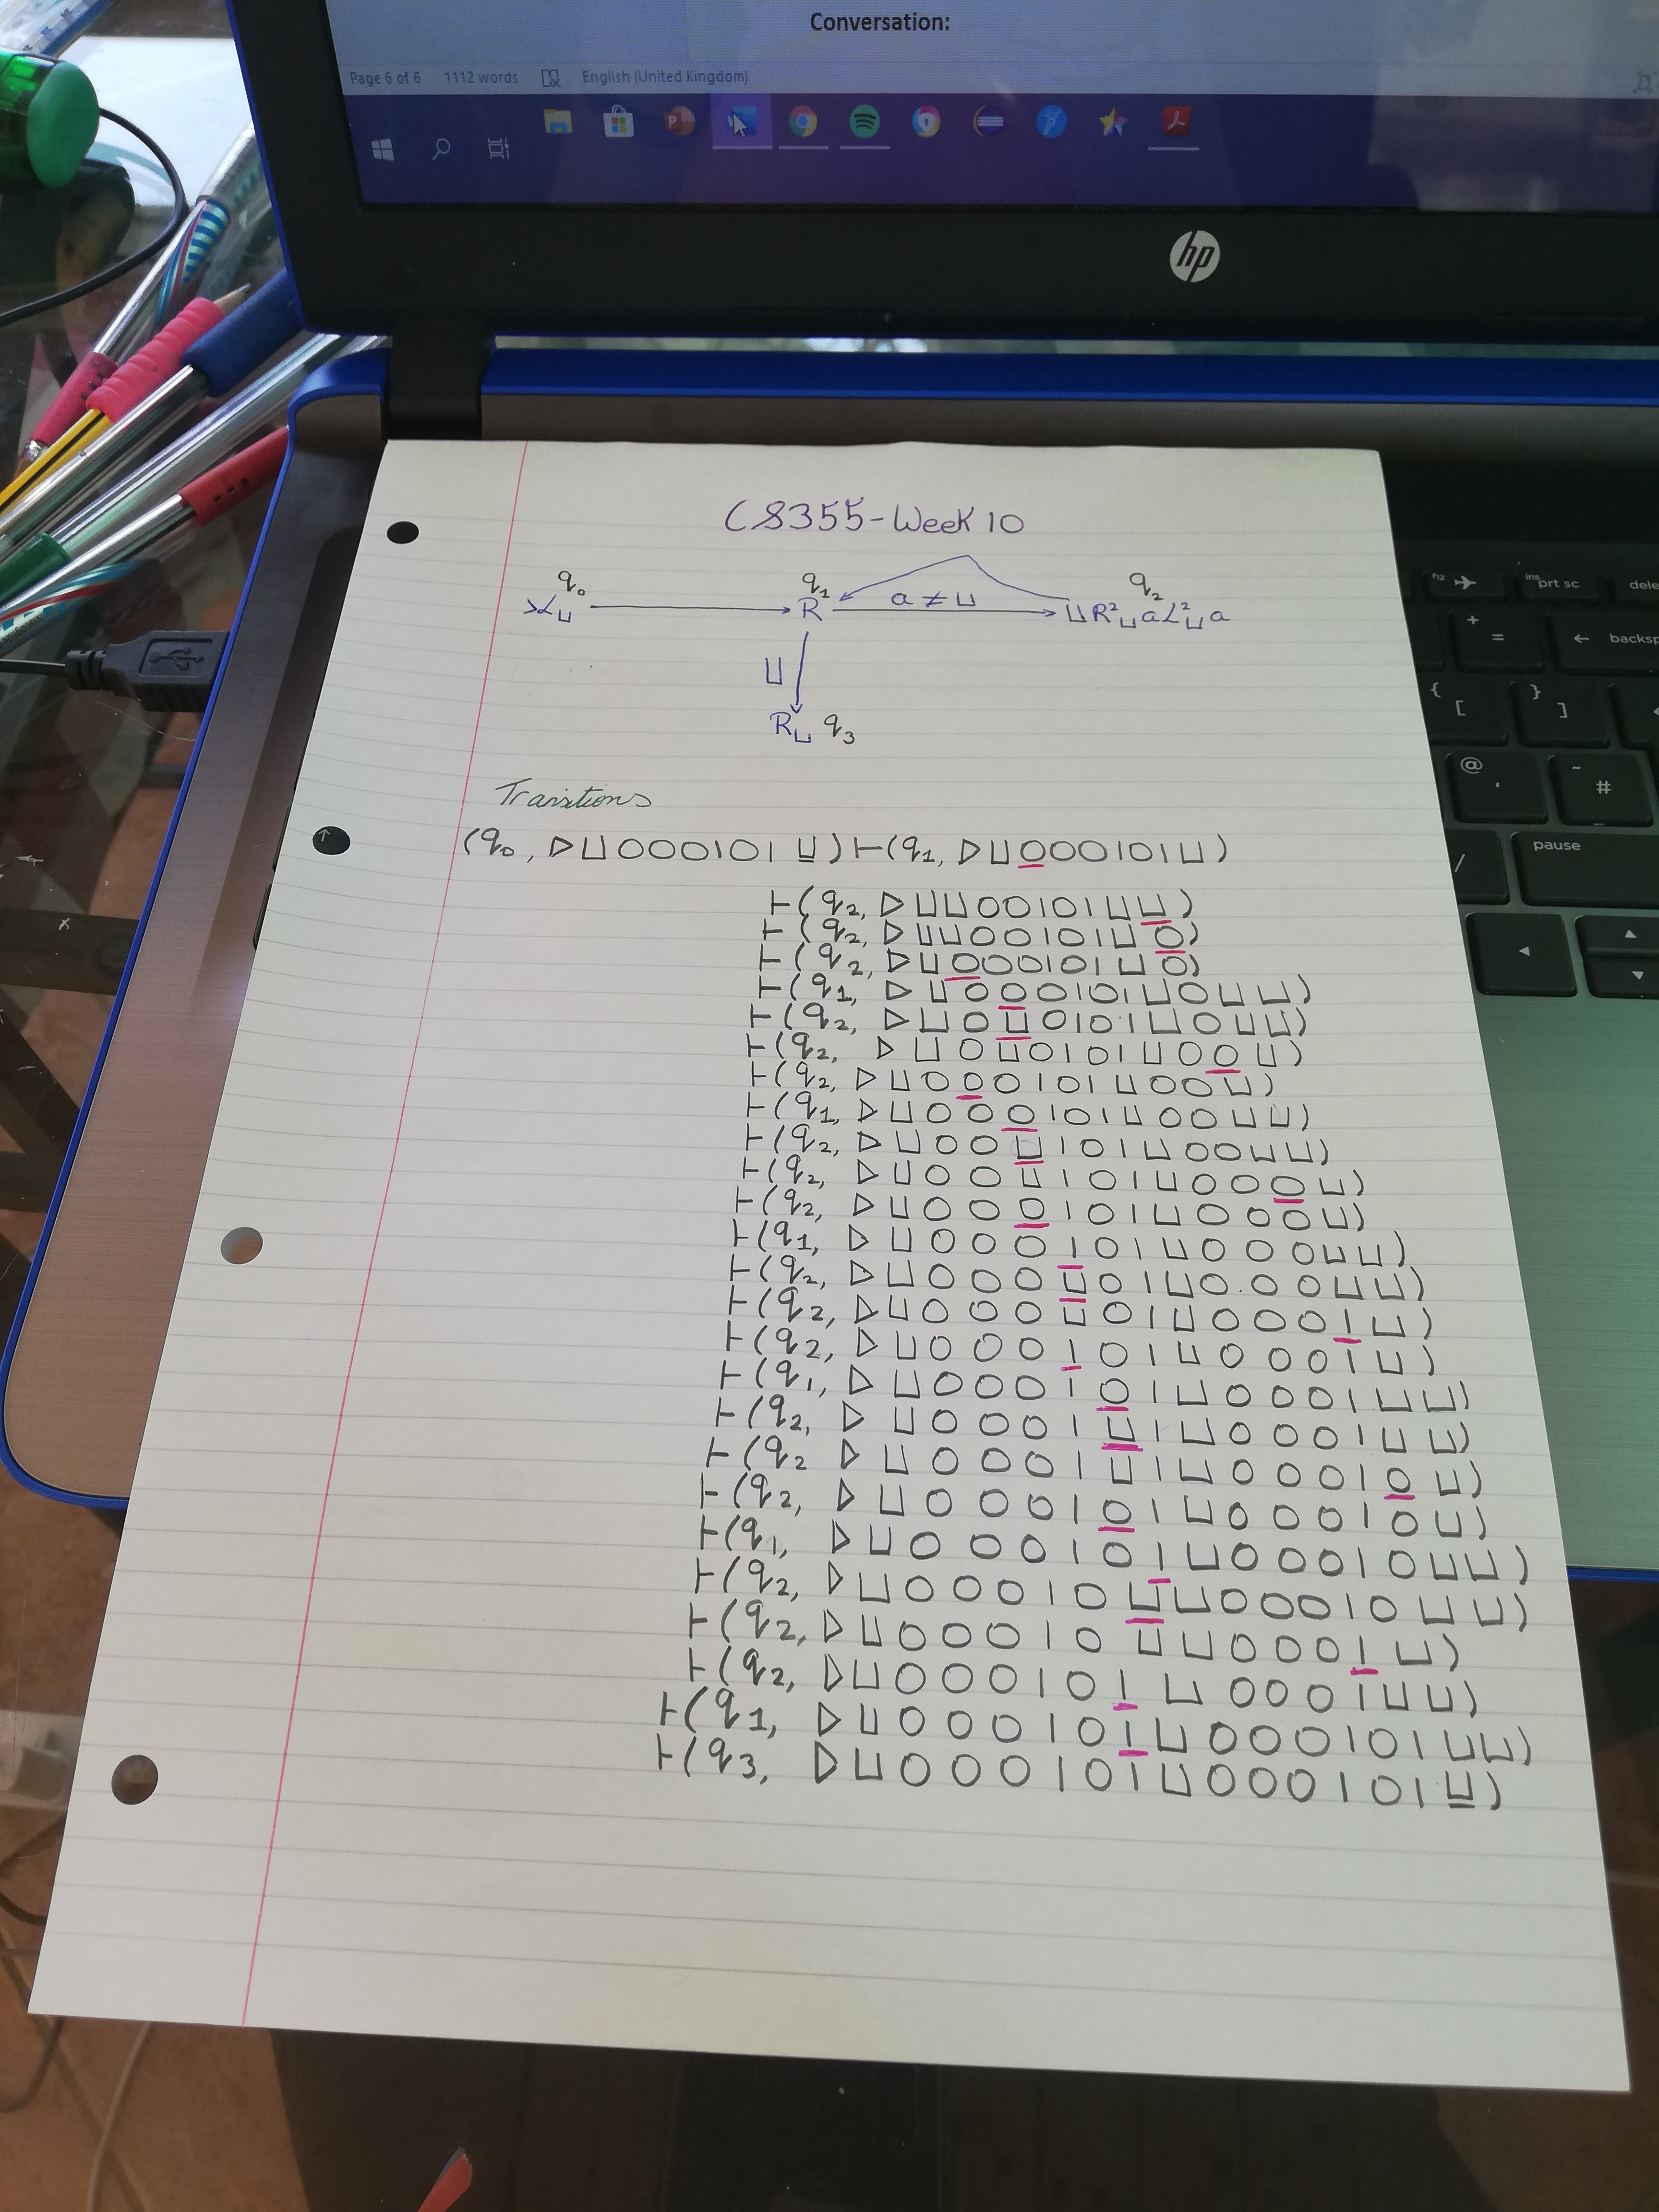 Conversation:
Page 6 of 6 1112 words English (United Kingdom)
hp
CS355-Week 10
q₀ q₁ q₂
>L⊔ R a ≠ ⊔ ⊔R²⊔aL²⊔a
⊔
R⊔ q₃
Transitions
(q₀, ▷⊔000101⊔)⊢(q₁, ▷⊔000101⊔)
⊢(q₂, ▷⊔⊔00101⊔⊔)
⊢(q₂, ▷⊔⊔00101⊔0)
⊢(q₂, ▷⊔000101⊔0)
⊢(q₁, ▷⊔000101⊔0⊔⊔)
⊢(q₂, ▷⊔0⊔0101⊔0⊔⊔)
⊢(q₂, ▷⊔0⊔0101⊔00⊔)
⊢(q₂, ▷⊔000101⊔00⊔)
⊢(q₁, ▷⊔000101⊔00⊔⊔)
⊢(q₂, ▷⊔00⊔101⊔00⊔⊔)
⊢(q₂, ▷⊔00⊔101⊔000⊔)
⊢(q₂, ▷⊔000101⊔000⊔)
⊢(q₁, ▷⊔000101⊔000⊔⊔)
⊢(q₂, ▷⊔000⊔01⊔0.00⊔⊔)
⊢(q₂, ▷⊔000⊔01⊔0001⊔)
⊢(q₂, ▷⊔000101⊔0001⊔)
⊢(q₁, ▷⊔000101⊔0001⊔⊔)
⊢(q₂, ▷⊔0001⊔1⊔0001⊔⊔)
⊢(q₂ ▷⊔0001⊔1⊔00010⊔)
⊢(q₂, ▷⊔000101⊔00010⊔)
⊢(q₁, ▷⊔000101⊔00010⊔⊔)
⊢(q₂, ▷⊔00010⊔⊔00010⊔⊔)
⊢(q₂, ▷⊔00010⊔⊔0001⊔)
⊢(q₂, ▷⊔000101⊔0001⊔⊔)
⊢(q₁, ▷⊔000101⊔000101⊔⊔)
⊢(q₃, ▷⊔000101⊔000101⊔)
prt sc
ins
dele
+
=
backsp
{
[
}
]
@
'
~
#
/
pause